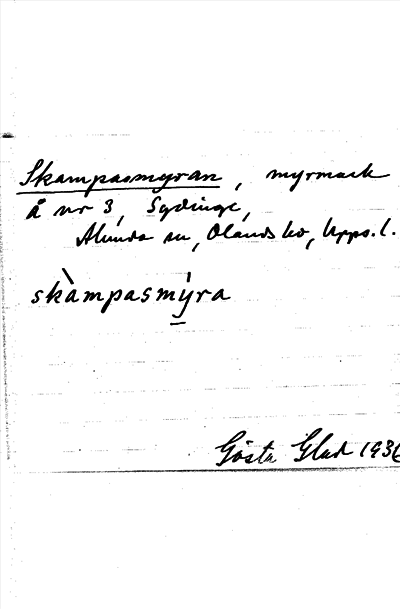 Skampasmyran, myrmark
å nr 3, Sydinge,
Alunda sn, Olands hd, Upps. l.
skàmpasmýra
Gösta Glad 1936